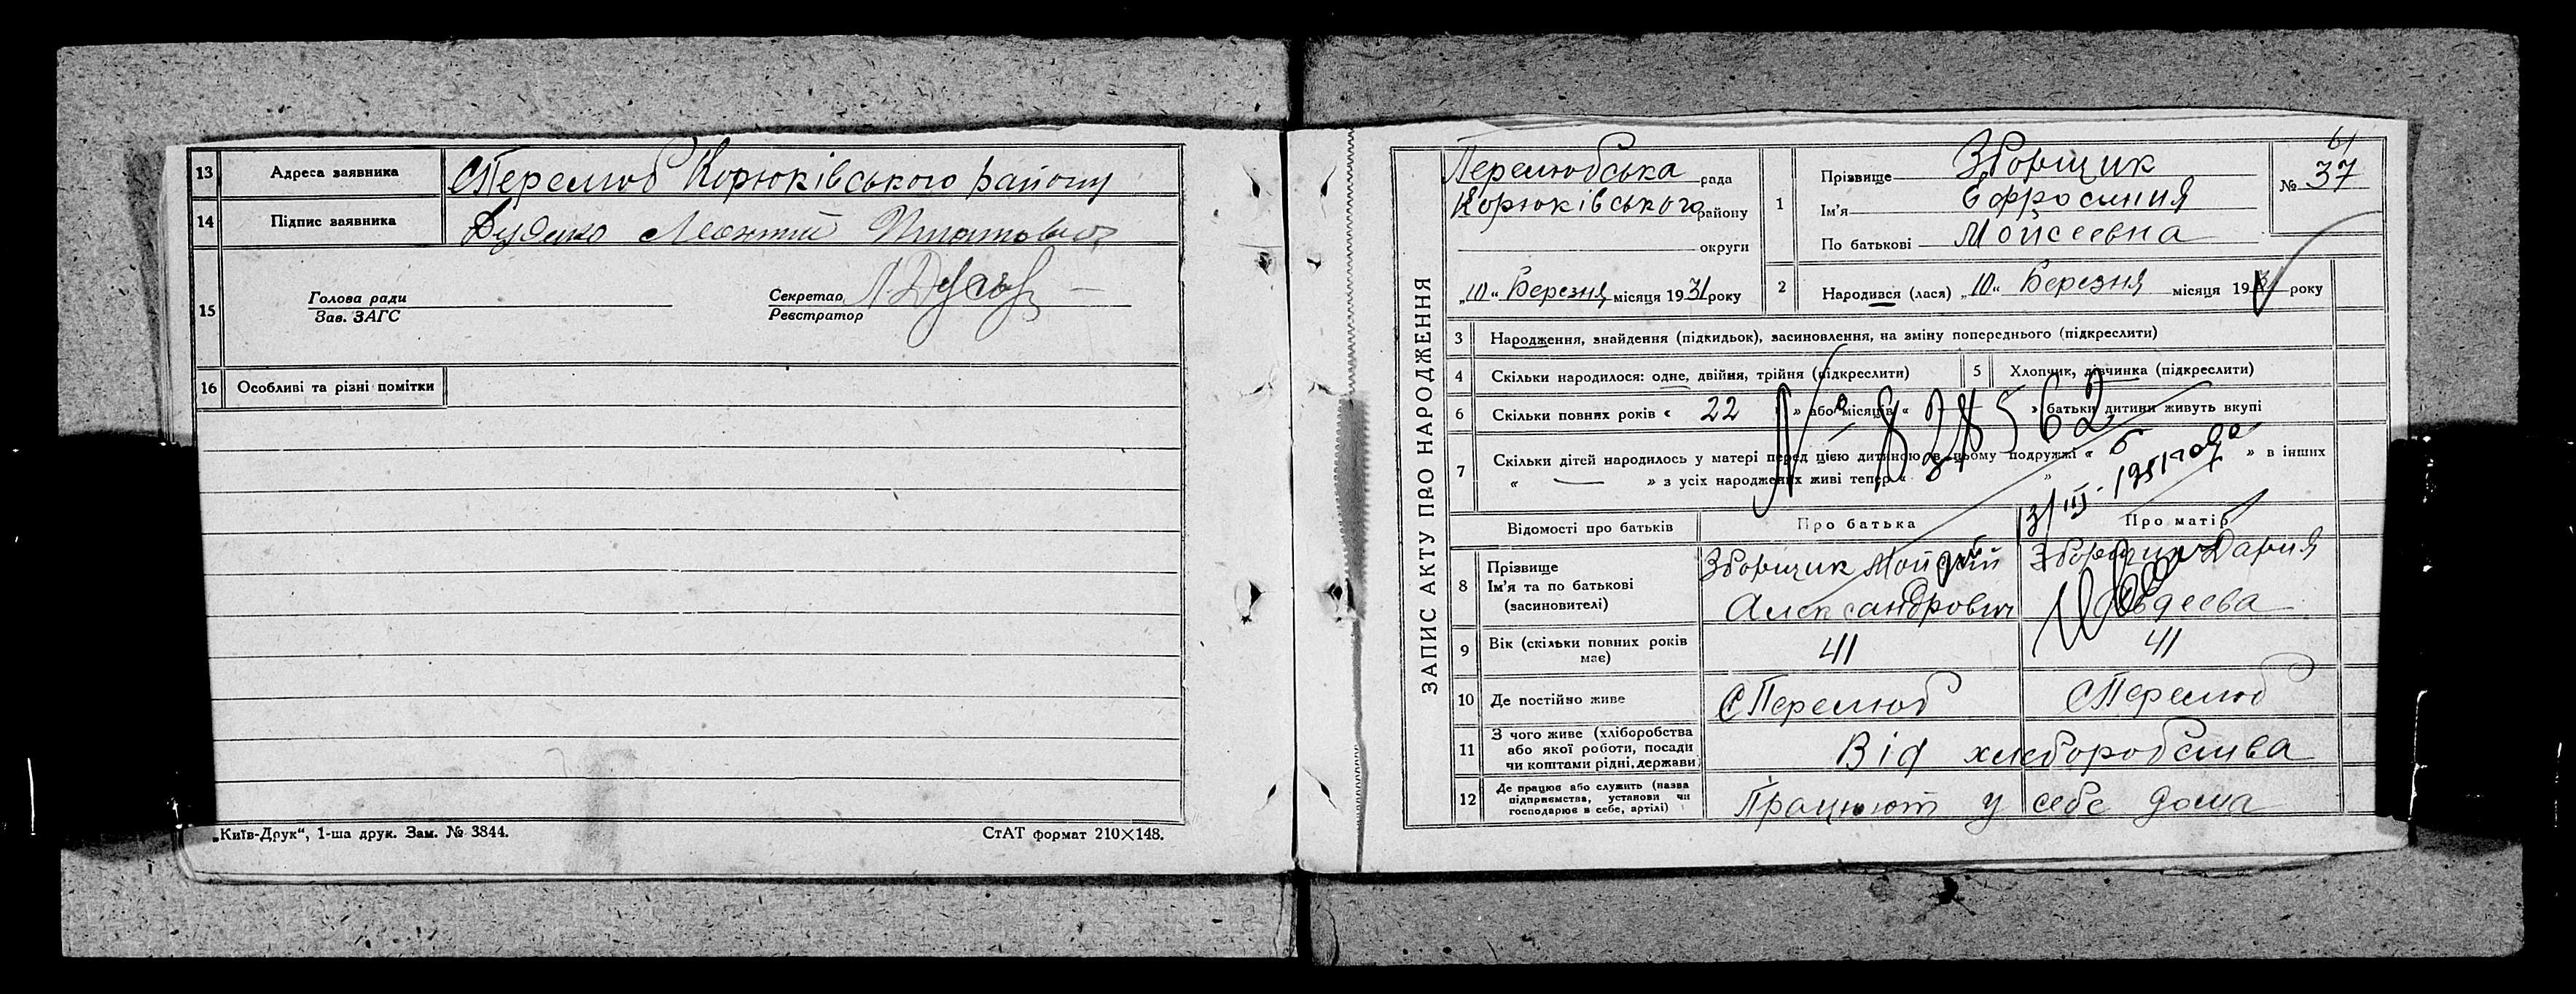 13 Адреса заявника С Перелюб Корюківського району
14 Підпис заявника Леонтий
15 Голова ради
Зав. ЗАГС
Секретар
Реєстратор
16 Особливі та різні помітки
„Київ-Друк“, 1-ша друк. Зам. № 3844.
СтАТ формат 210×148.
ЗАПИС АКТУ ПРО НАРОДЖЕННЯ
Перелюбська рада
Корюківського району
округи
„10“ Березня місяця 1931 року
1 Прізвище Зборщик
Ім'я Ефросиния
По батькові Мойсеевна
№ 37
2 Народився (лася) „10“ Березня місяця 1931 року
3 Народження, знайдення (підкидьок), засиновлення, на зміну попереднього (підкреслити)
4 Скільки народилося: одне, двійня, трійня (підкреслити)
5 Хлопчик, дівчинка (підкреслити)
6 Скільки повних років « 22 » або місяців « » батьки дитини живуть вкупі
7 Скільки дітей народилось у матері перед цією дитиною в цьому подружжі « 6 » в інших
« — » з усіх народжених живі тепер « »
Відомості про батьків
Про батька
Про матір
8 Прізвище
Ім'я та по батькові
(засновителі)
Зборщик Мойсей
Александрович
Зборщик Дария
Авдеева
9 Вік (скільки повних років
має)
41
41
10 Де постійно живе
С Перелюб
С Перелюб
11 З чого живе (хліборобства
або якої роботи, посади
чи коштами рідні, держави)
Від хлеборобства
12 Де працює або служить (назва
підприємства, установи чи
господарює в себе, артілі)
Працюют у себе дома